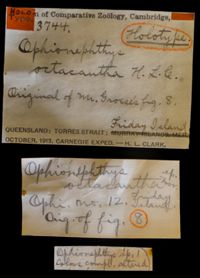 HOLO-
TYPE
m of Comparative Zoölogy, Cambridge,
3744.
Holotype.
Ophionephthys
octacantha H.L.C.
Original of Mr. Grosse's fig. 8.
Friday Island
QUEENSLAND: TORRES STRAIT: MURRAY ISLAND, MER
OCTOBER, 1913. CARNEGIE EXPED.—H. L. CLARK.
Ophionephthys sp.
octacantha
Ophi. no. 12. Friday
Island.
Orig. of fig. 8
Ophionephthys sp. 1